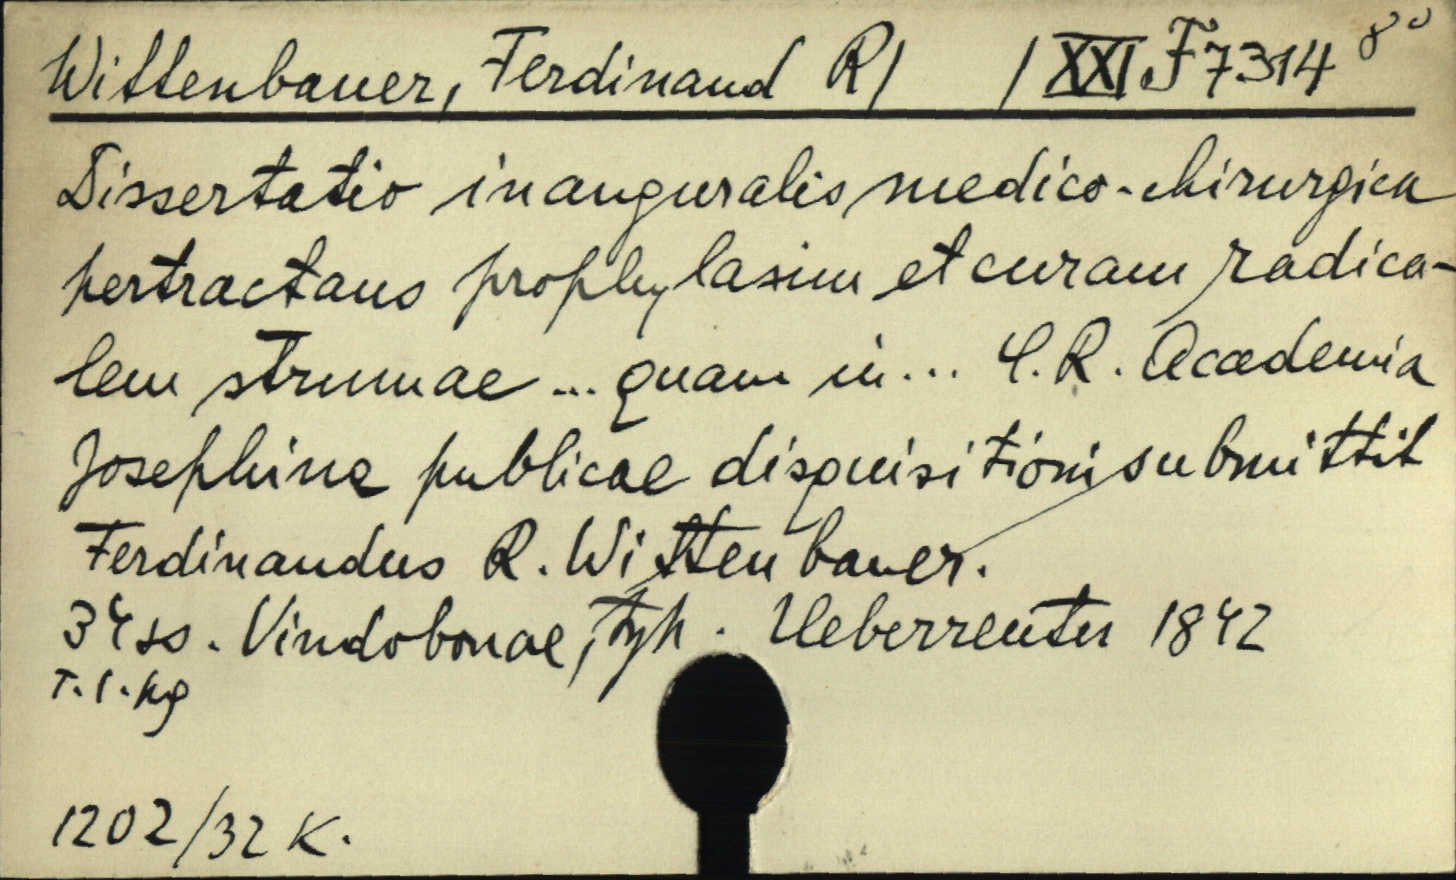 Wittenbauer, Ferdinand R/ / XXI. F 7314 8°
Dissertatio inauguralis medico-chirurgica
pertractans prophylaxim et curam radica-
lem strumae ... quam in ... C. R. Academia
Josephina publicae disquisitioni submittit
Ferdinandus R. Wittenbauer.
34 ss. Vindobonae, typ. Ueberreuter 1842
T. 1. kg
1202/32 K.